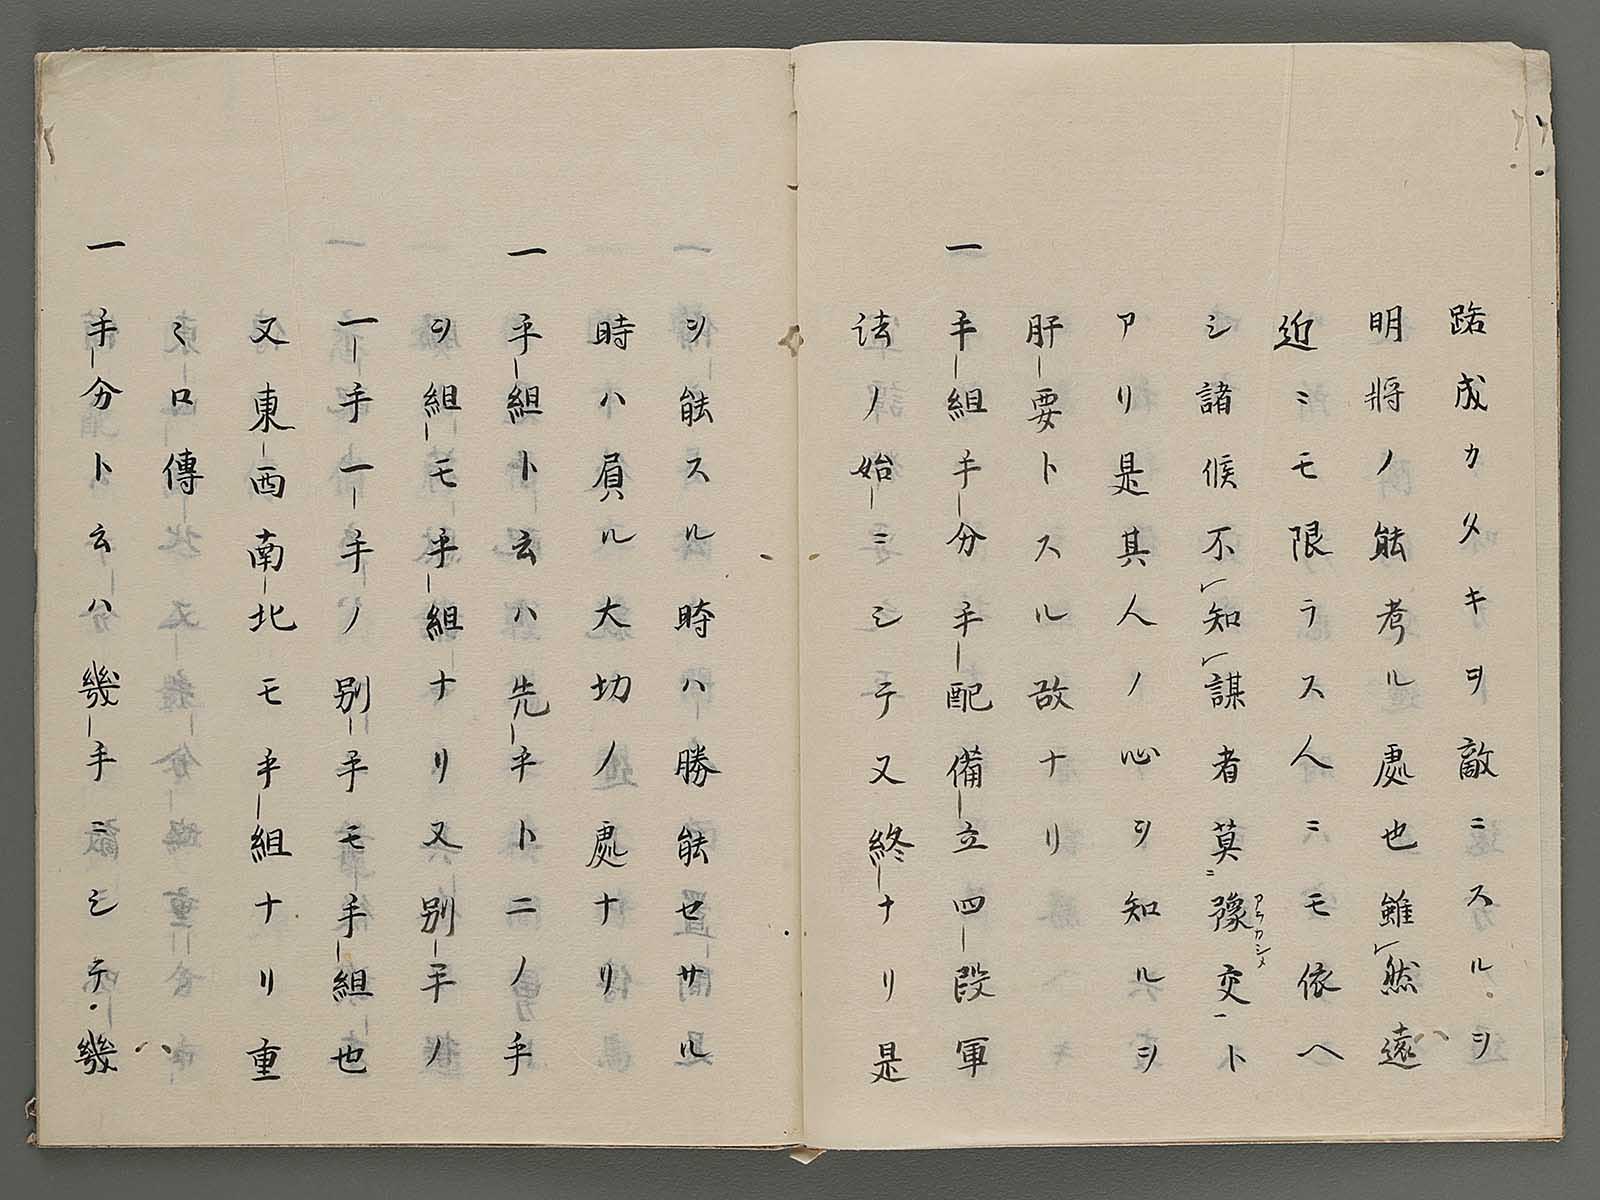 踞成カタキヲ敵ニスル・ヲ
明將ノ能考ル處也雖レ然遠
近ニモ限ラス人ニモ依ヘ
シ諸候不レ知レ謀者莫ニ豫アラカシメ交一ト
アリ是其人ノ心ヲ知ルヲ
肝要トスル故ナリ
一 手組手分手配備立四段軍
法ノ始ニシテ又終ナリ是
ヲ能スル時ハ勝能セサル
時ハ負ル大切ノ處ナリ
一 手組ト云ハ先手ト二ノ手
ヲ組モ手組ナリ又別手ノ
一手一手ノ別手モ手組也
又東西南北モ手組ナリ重
々口傳
一 手分ト云ハ幾手ニシテ・幾